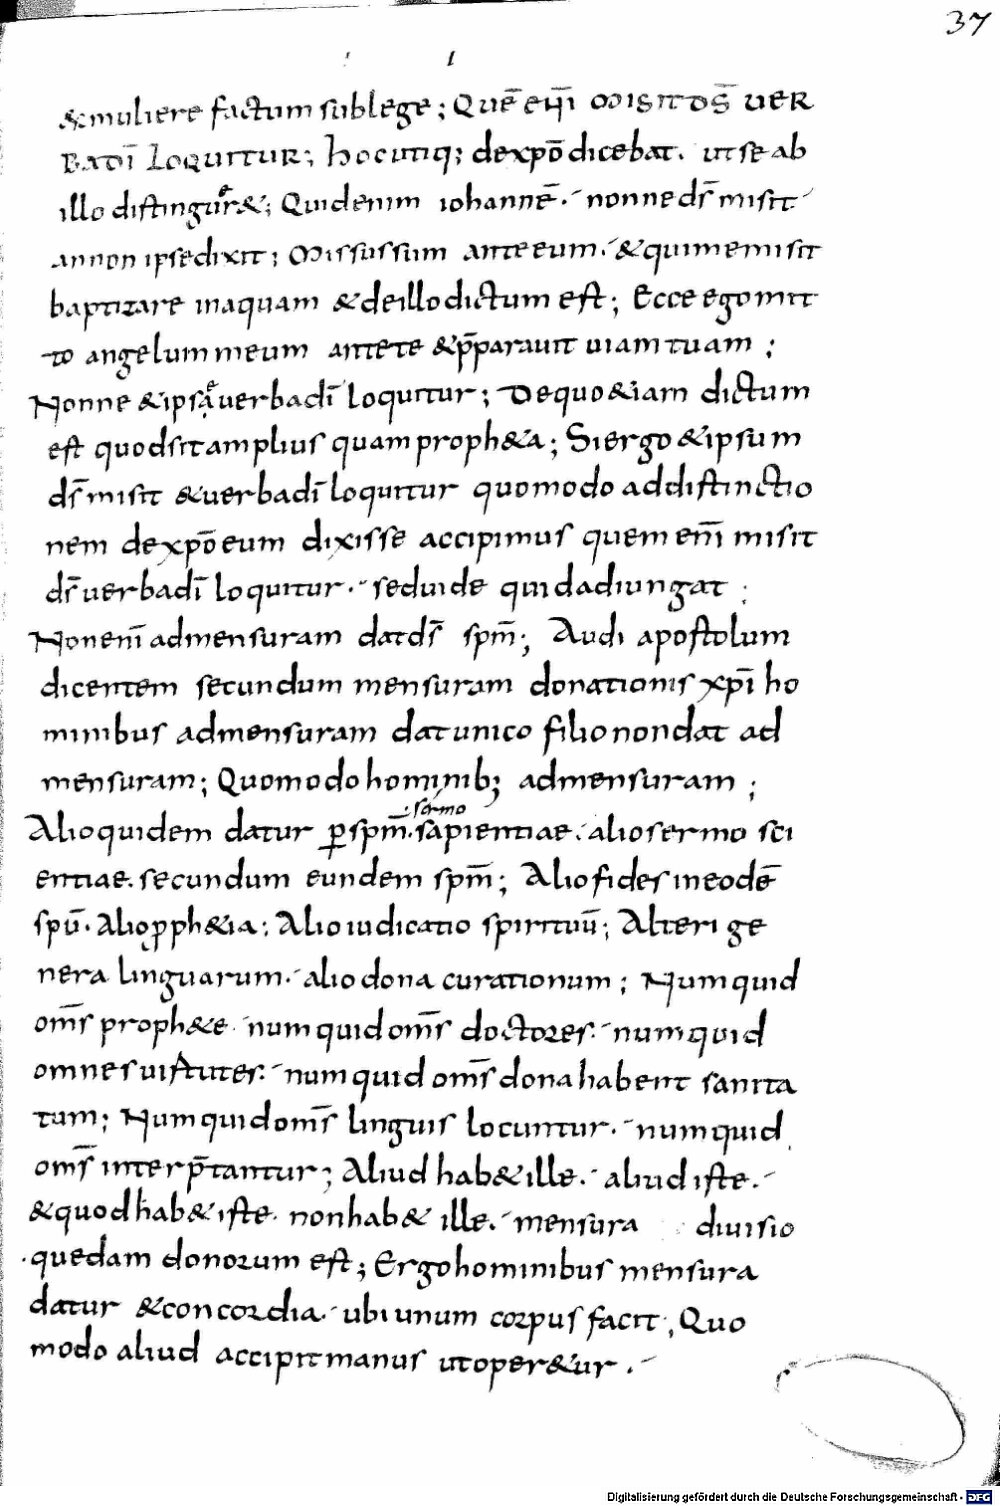 37
&muliere factum sub lege; Quē eni̅ misit ds̅ uer
ba di̅ loquitur; hoc utiq; dexpo̅ dicebat. ut se ab
illo distingueret&; Quid enim iohannē. nonne ds̅ misit
annon ipse dixit; Missus sum ante eum. & qui me misit
baptizare in aqua m & de illo dictum est; Ecce ego mit
to angelum meum ante te & p̅parauit uiam tuam;
Nonne & ipse uerba di̅ loquitur; De quo & iam dictum
est quod sit amplius quam proph&a; Si ergo & ipsum
ds̅ misit & uerba di̅ loquitur quomodo ad distinctio
nem dexpo̅ eum dixisse accipimus quem eni̅ misit
ds̅ uerba di̅ loquitur. sed uide quid adiungat;
Non eni̅ ad mensuram dat ds̅ spm̅; Audi apostolum
dicentem secundum mensuram donationis xpi̅ ho
minibus ad mensuram dat unico filio non dat ad
mensuram; Quomodo hominib; ad mensuram;
sermo
Alio quidem datur p̱ spm̅. sapientiae. alio sermo sci
entiae. secundum eundem spm̅; Alio fides in eodē
spū. Alio ꝓph&ia; Alio iudicatio spirituū; Alteri ge
nera linguarum. alio dona curationum; Numquid
oms̅ proph&e. numquid oms̅ doctores. numquid
omnes uirtutes. numquid oms̅ dona habent sanita
tum; Numquid oms̅ linguis locuntur. numquid
oms̅ interp̅tantur; Aliud hab& ille. aliud iste.
& quod hab& iste. non hab& ille. mensura diuisio
quedam donorum est; Ergo hominibus mensura
datur & concordia. ubi unum corpus facit; Quo
modo aliud accipit manus ut oper&ur.
Digitalisierung gefördert durch die Deutsche Forschungsgemeinschaft - DFG